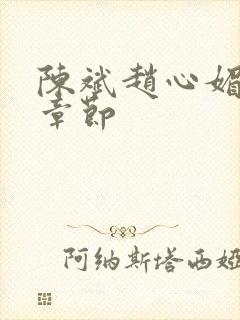 陳斌趙心媚
章節
阿纳斯塔西婭